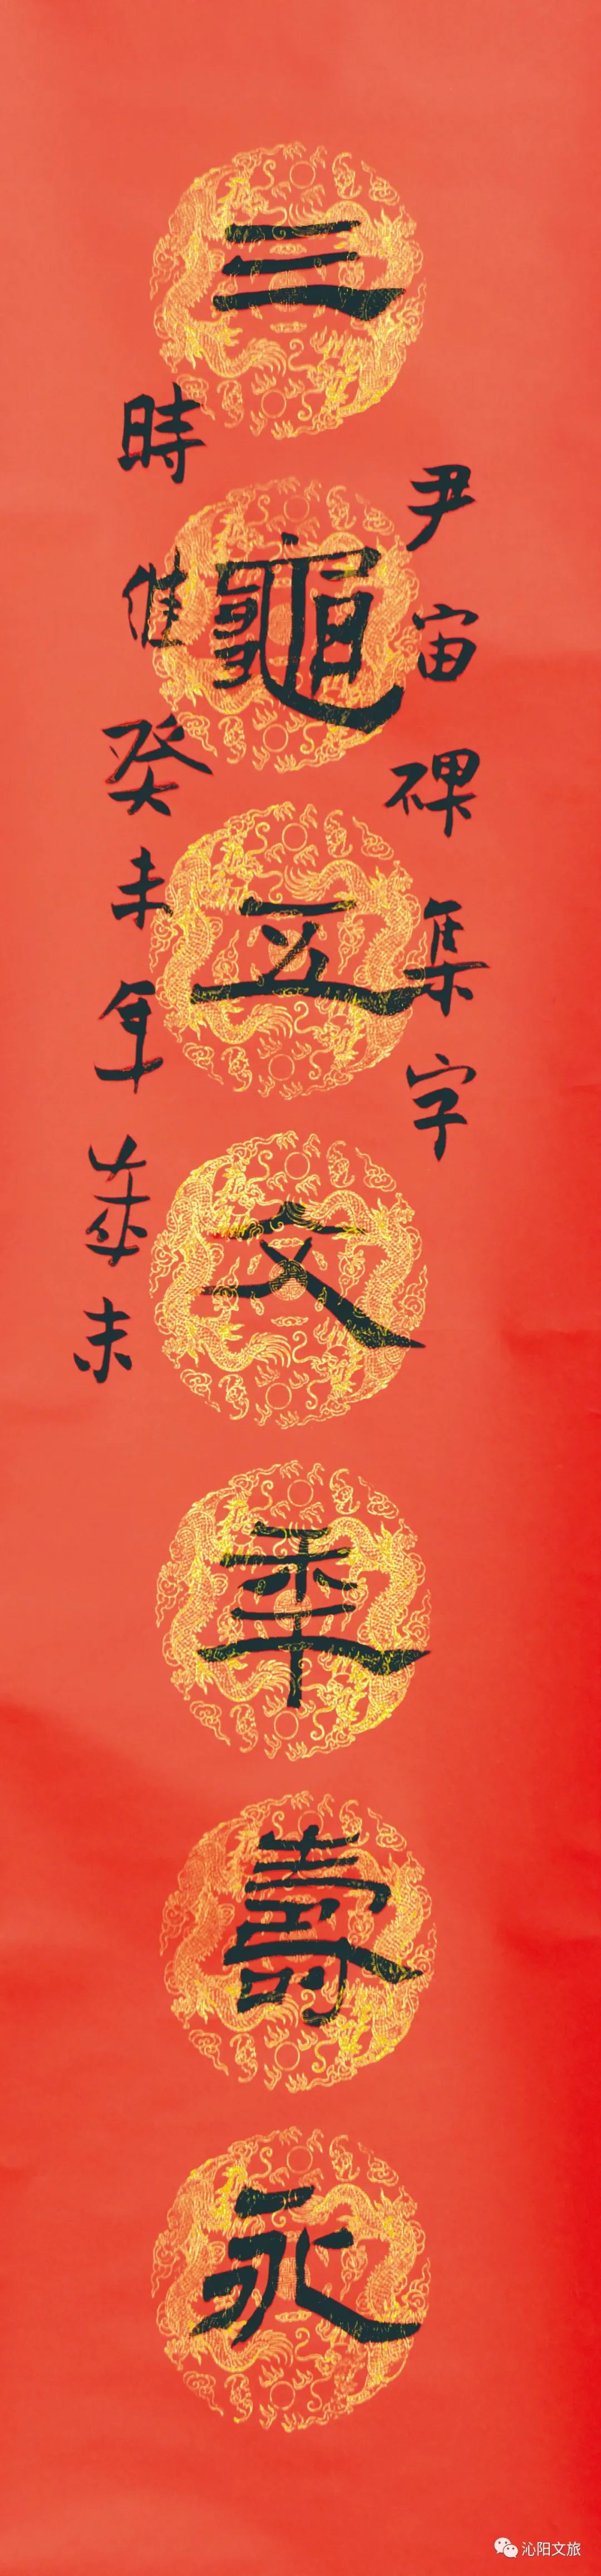 三龜立文年壽永
尹宙碑集字
時維癸未年歲末
沁阳文旅